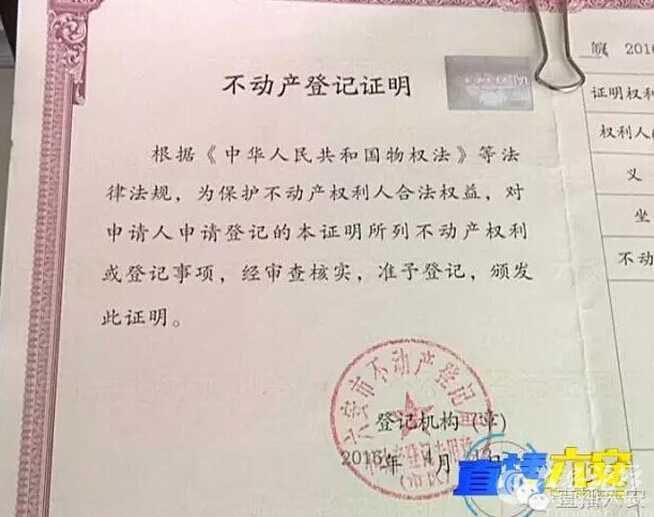 不动产登记证明
根据《中华人民共和国物权法》等法
律法规，为保护不动产权利人合法权益，对
申请人申请登记的本证明所列不动产权利
或登记事项，经审查核实，准予登记，颁发
此证明。
六安市不动产登记
登记机构（章）
2016年 1月 日
直播六安
直播六安
皖 2016
证明权利
权利人(
义
坐
不动